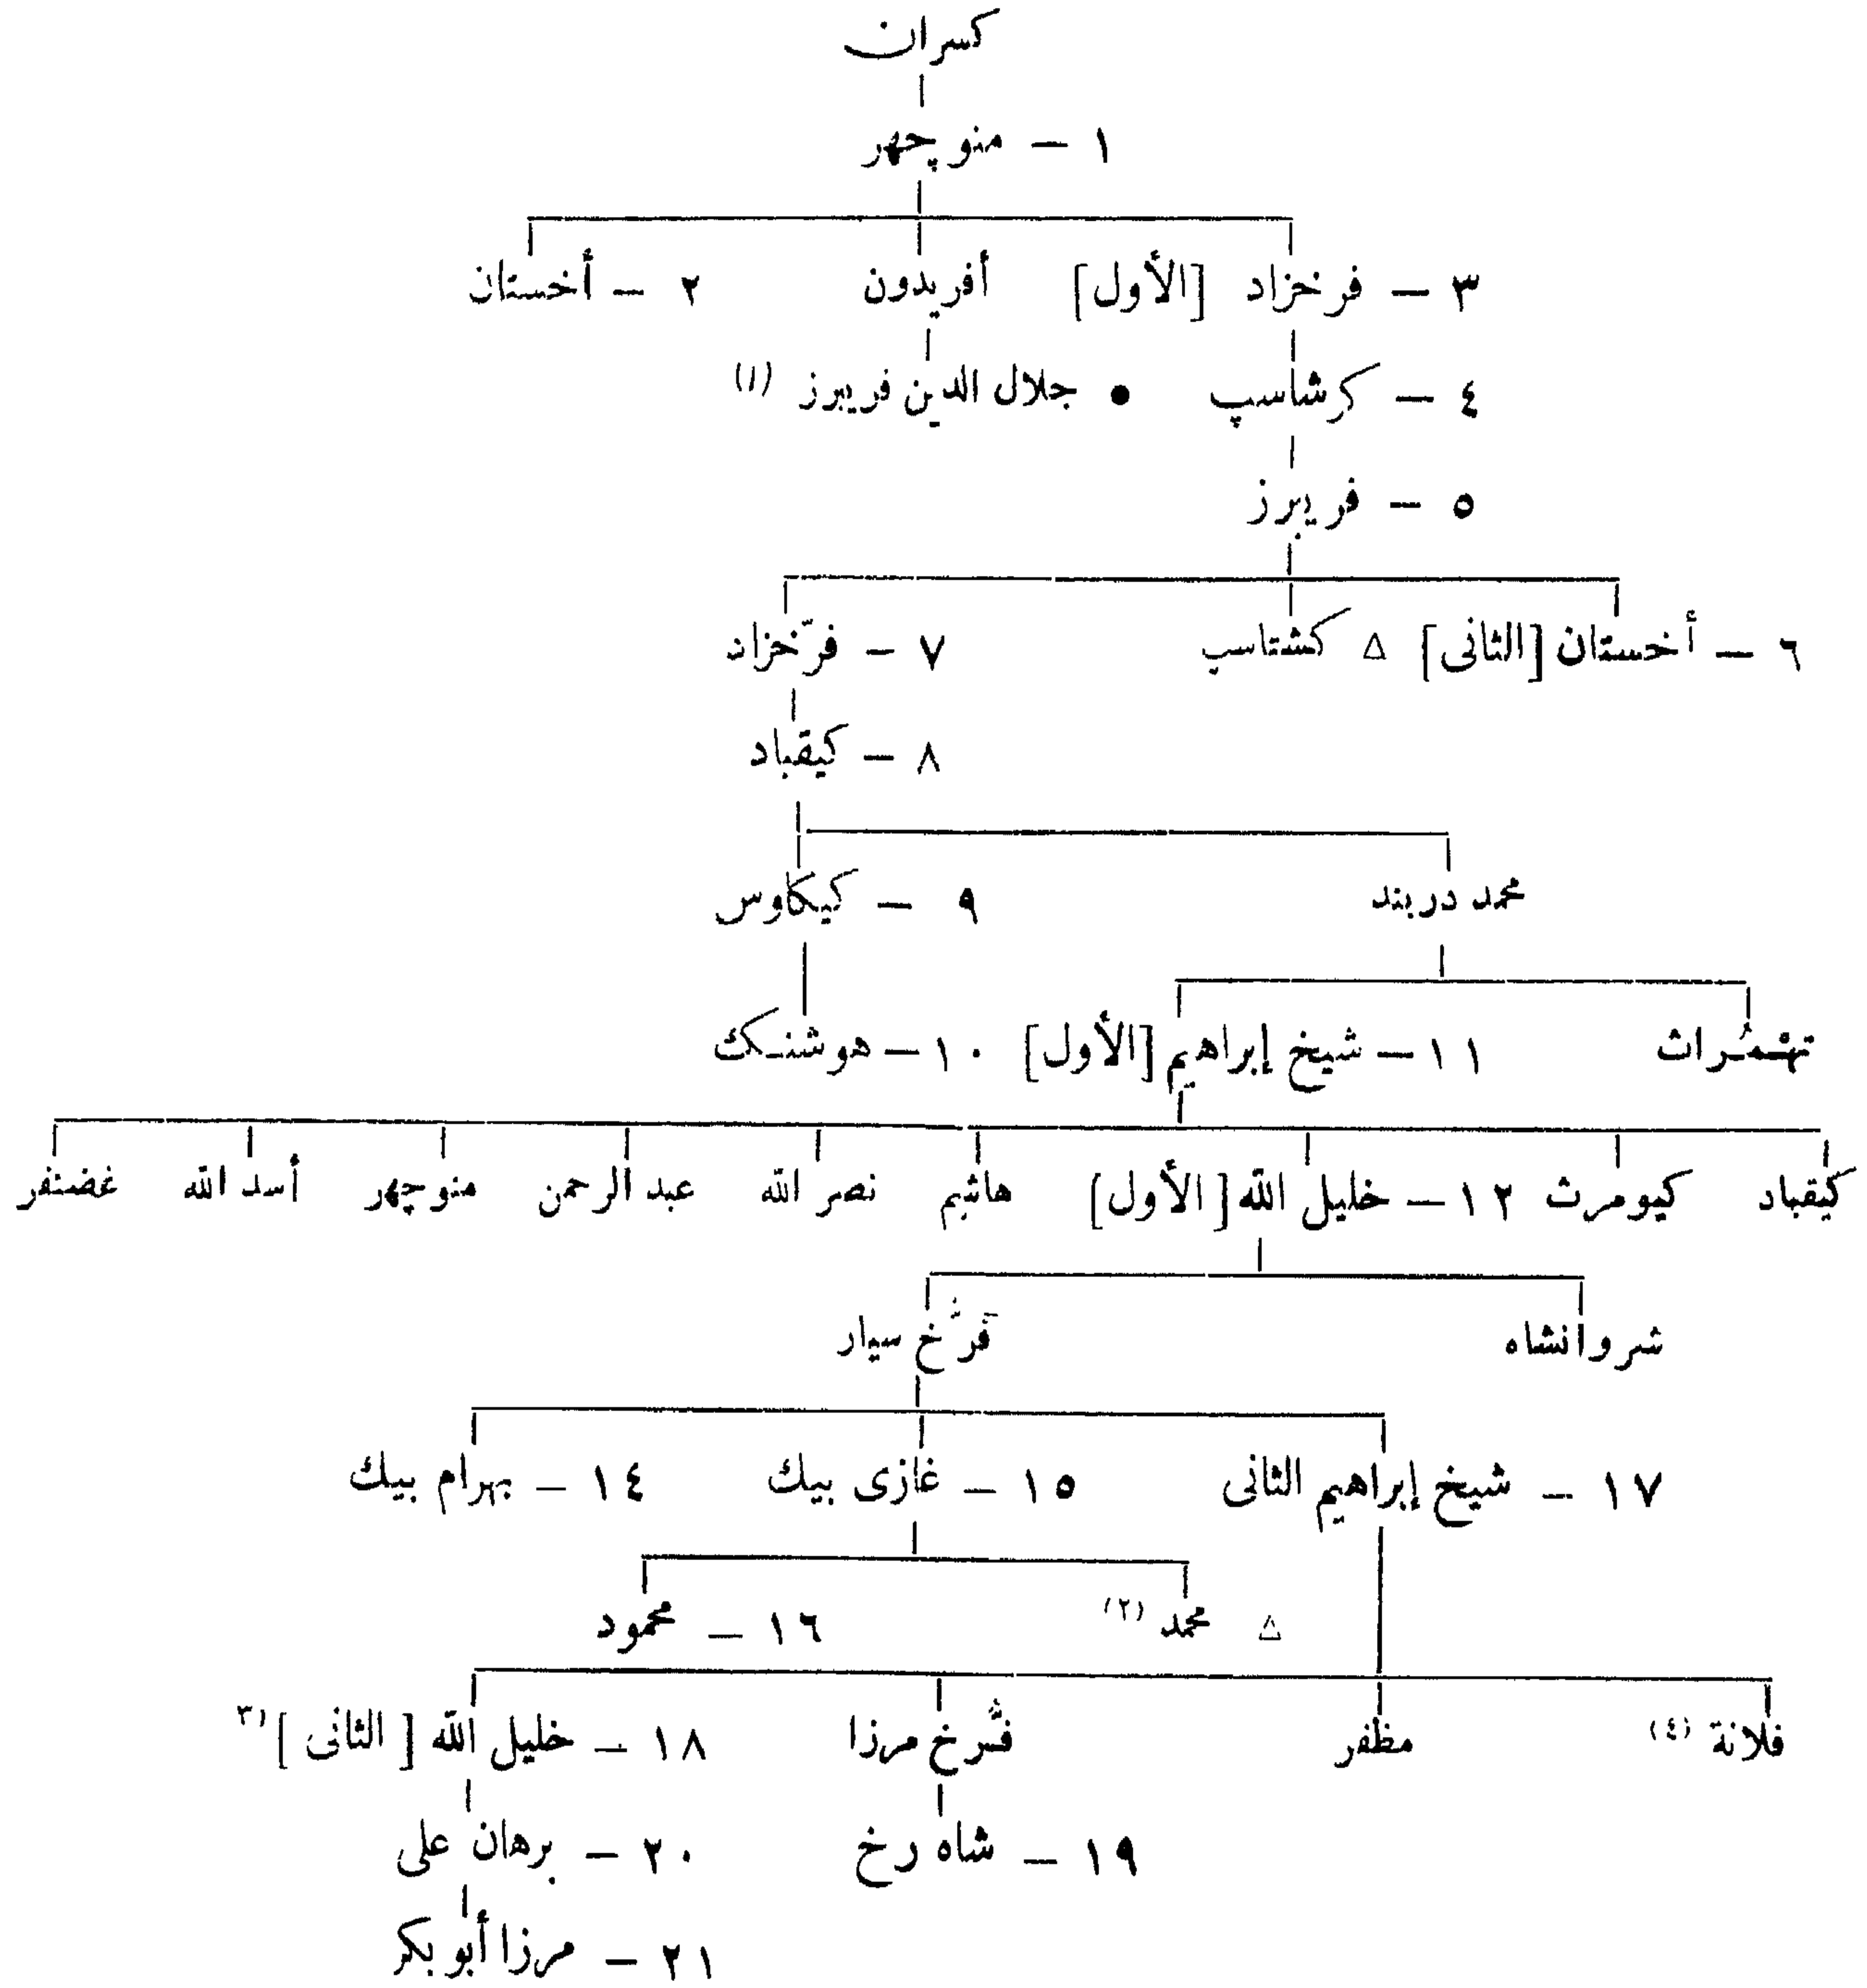 كسران
١ – منوچهر
٣ – فرخزاد [الأول] أفريدون ٢ – أخستان
٤ – كرشاسپ • جلال الدين فريبرز (١)
٥ – فريبرز
٦ – أخستان [الثانى] △ كشتاسب ٧ – فرّخزاد
٨ – كيقباد
محمد دربند ٩ – كيكاوس
تهْمُراث ١١ – شيخ إبراهيم [الأول] ١٠ – هوشنك
كيقباد كيومرث ١٢ – خليل الله [الأول] هاشم نصر الله عبد الرحمن منوچهر أسد الله غضنفر
شروانشاه فَرُّخ سيار
١٧ – شيخ إبراهيم الثانى ١٥ – غازى بيك ١٤ – بهرام بيك
△ محمد (٢) ١٦ – محمود
فلانة (٤) مظفر فرُّخ مرزا ١٨ – خليل الله [الثانى] (٣
١٩ – شاه رخ ٢٠ – برهان على
٢١ – مرزا أبو بكر